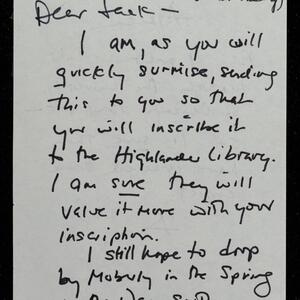 Dear Jack —
I am, as you will
quickly surmise, sending
this to you so that
you will inscribe it
to the Highlander Library.
I am sure they will
value it more with your
inscription.
I still hope to drop
by Moberly in the Spring